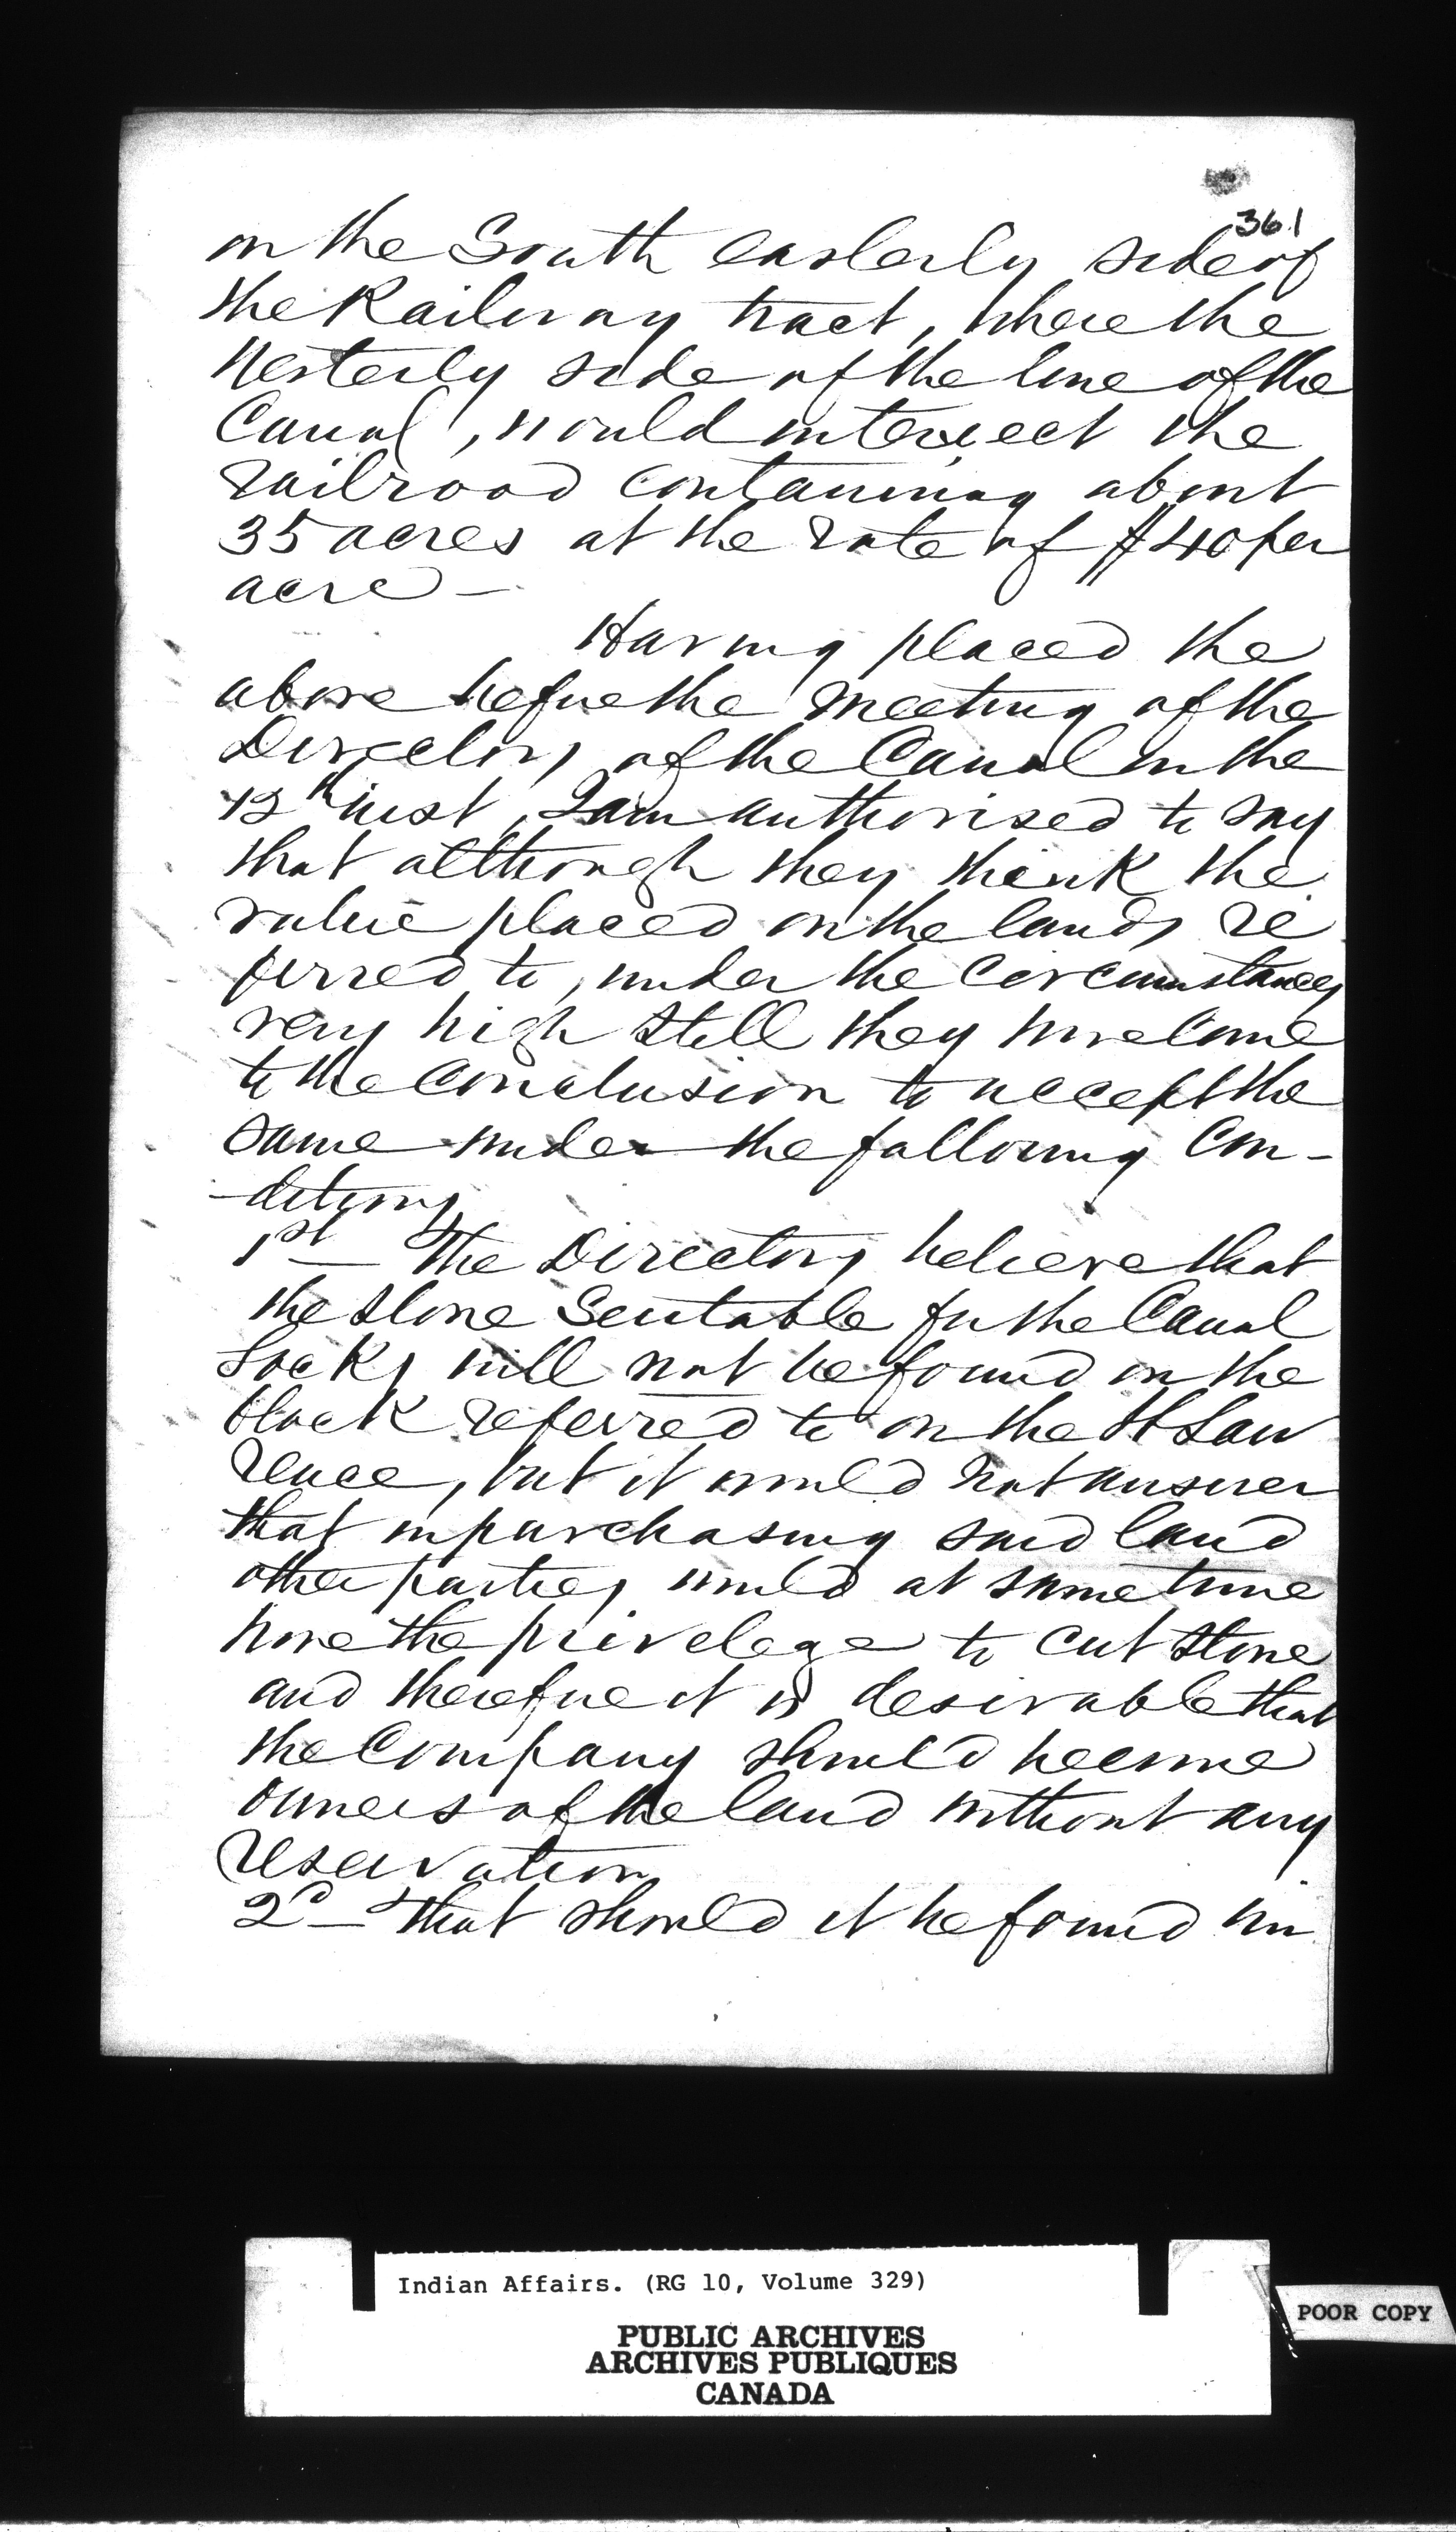 361
on the South easterly side of
the Railway tract, where the
Westerly side of the line of the
Canal, would intersect the
railroad containing about
35 acres at the rate of $40 per
acre —
Having placed the
above before the meeting of the
Directors of the Canal on the
12th inst, I am authorised to say
that although they think the
value placed on the lands re
ferred to, under the Circumstances
very high still they have Come
to the Conclusion to accept the
same under the following Con-
-ditions
1st — The Directors believe that
the stone Seutable for the Canal
Locks will not be found on the
block referred to on the St Law
rence, but it would not answer
that in purchasing said land
other parties would at some time
have the privelege to Cut Stone
and therefore it is desirable that
the Company should become
owners of the land without any
reservation
2d — That should it be found un
Indian Affairs. (RG 10, Volume 329)
PUBLIC ARCHIVES
ARCHIVES PUBLIQUES
CANADA
POOR COPY